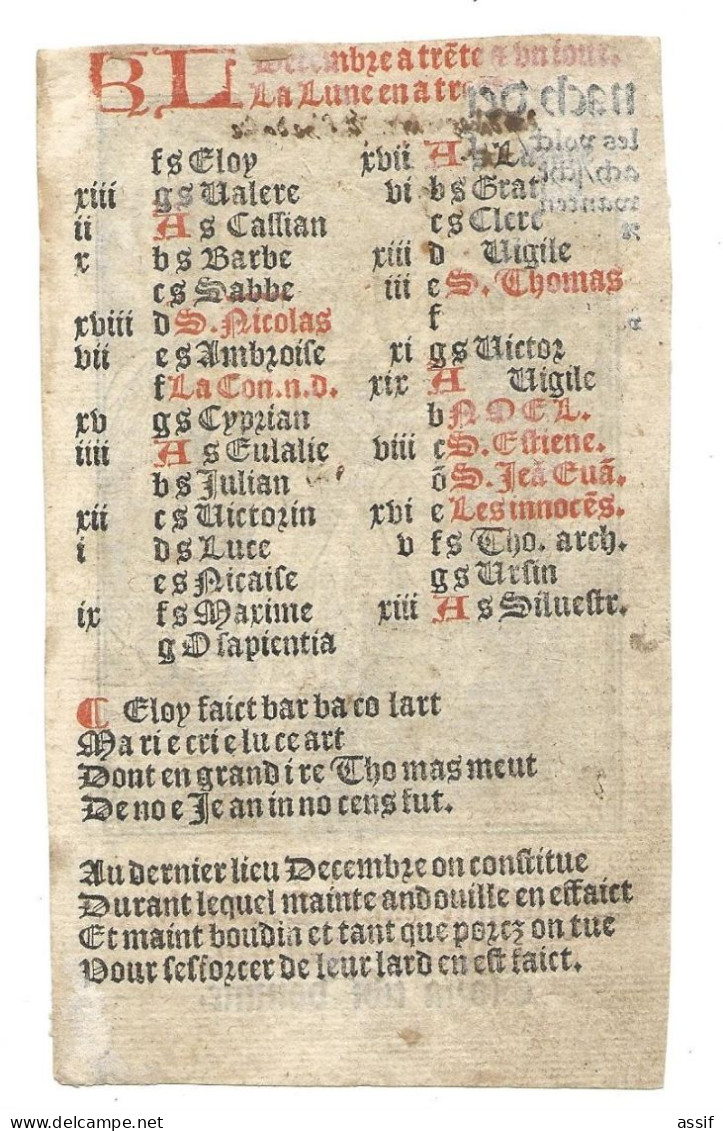 KL Decembre a trēte & vn iour.
La Lune en a
f s Eloy
xiii g s Ualere
ii A s Cassian
x b s Barbe
c s Sabbe
xviii d S. Nicolas
vii e s Ambroise
f La Con. n. d.
xv g s Cyprian
iiii A s Eulalie
b s Julian
xii c s Uictorin
i d s Luce
e s Nicaise
ix f s Maxime
g O sapientia
xvii A s
vi b s Grat
c s Clere
xiii d Uigile
iii e S. Thomas
f
xi g s Uictor
xix A Uigile
b NOEL.
viii c S. Estiene.
d S. Jeā Euā.
xvi e Les innocēs.
v f s Tho. arch.
g s Ursin
xiii A s Siluestr.
¶ Eloy faict bar ba co lart
Ma ri e cri e lu ce art
Dont en grand i re Tho mas meut
De no e Je an in no cens fut.
Au dernier lieu Decembre on constitue
Durant lequel mainte andouille en effaict
Et maint boudin et tant que porcz on tue
Pour sefforcer de leur lard en est faict.
assif